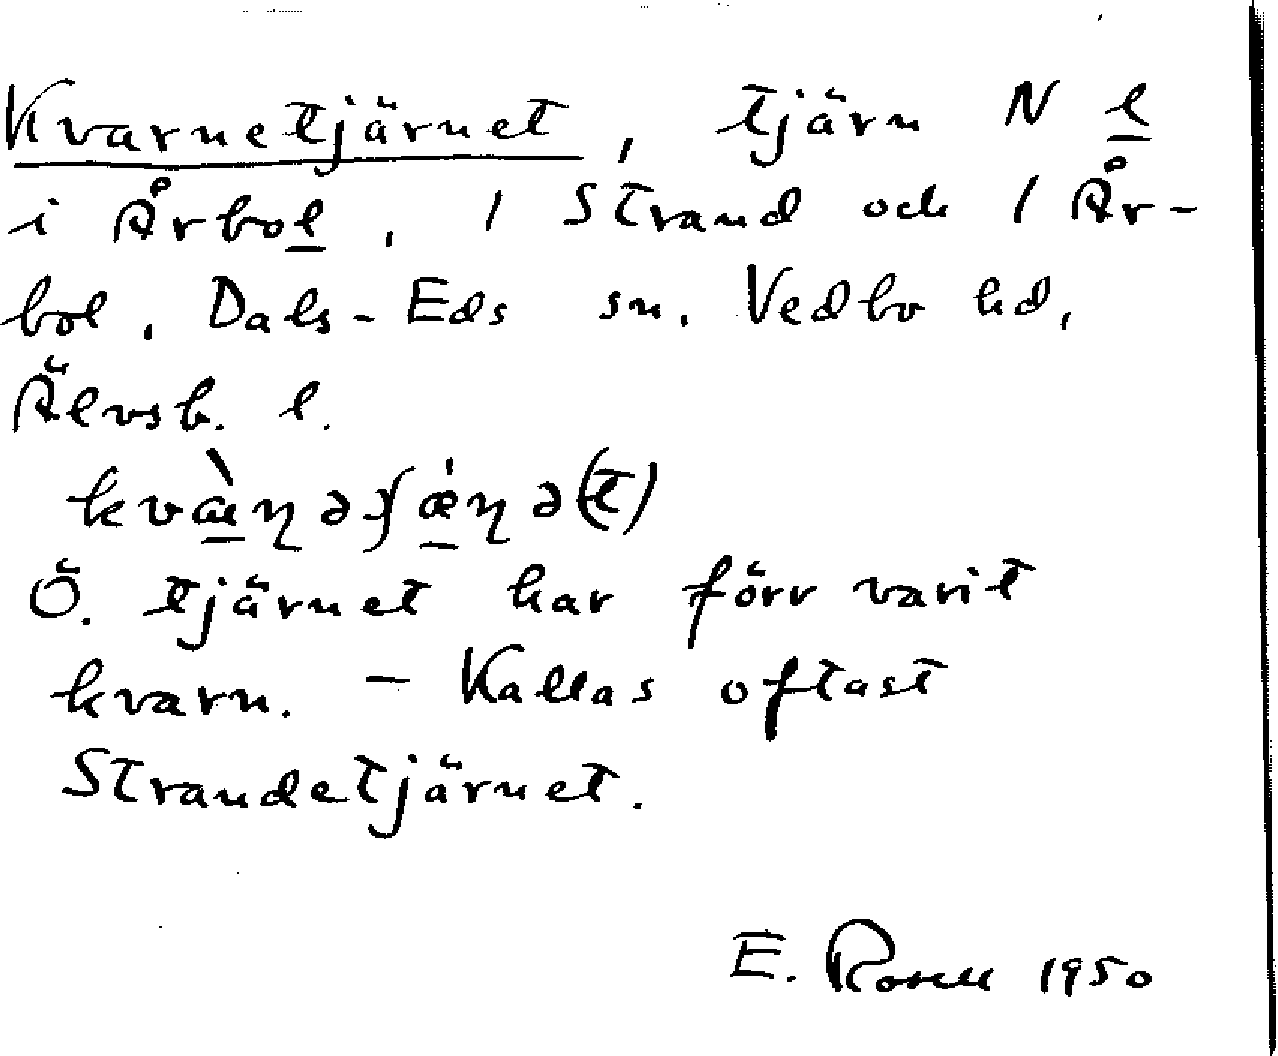 Kvarnetjärnet, tjärn N l
i Årbol, 1 Strand och 1 År-
bol, Dals-Eds sn, Vedbo hd,
Älvsb. l.
Ö. tjärnet har förr varit
kvarn. – Kallas oftast
Strandetjärnet.
E. Rosell 1950